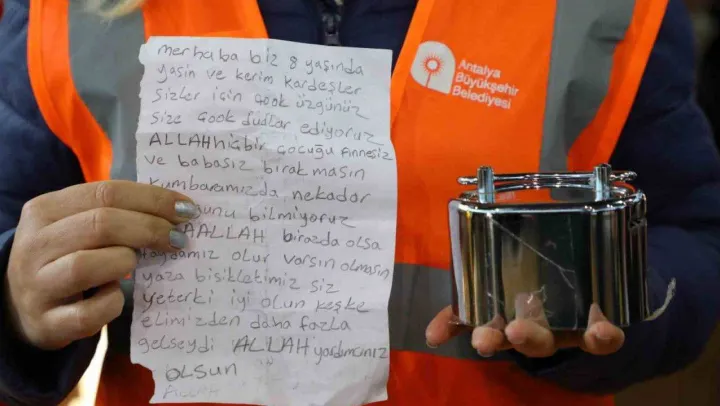 merhaba biz 8 yaşında
yasin ve kerim kardeşler
sizler için çook üzgünüz
size çook dualar ediyoruz
ALLAH hiçbir çocuğu annesiz
ve babasız bırakmasın
kumbaramızda nekadar
bilmiyoruz
ALLAH birazda olsa
faydamız olur varsın olmasın
yaza bisikletimiz siz
yeterki iyi olun keşke
elimizden daha fazla
gelseydi ALLAH yardımcınız
olsun
Antalya
Büyükşehir
Belediyesi